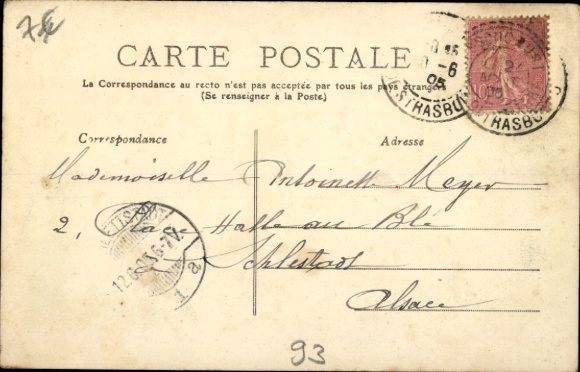 CARTE POSTALE
La Correspondance au recto n'est pas acceptée par tous les pays étrangers
(Se renseigner à la Poste.)
Correspondance
Adresse
Mademoiselle Antoinette Meyer
2, Halle au Blé
Schlestadt
Alsace
STRASBOURG
STRASBOURG
93